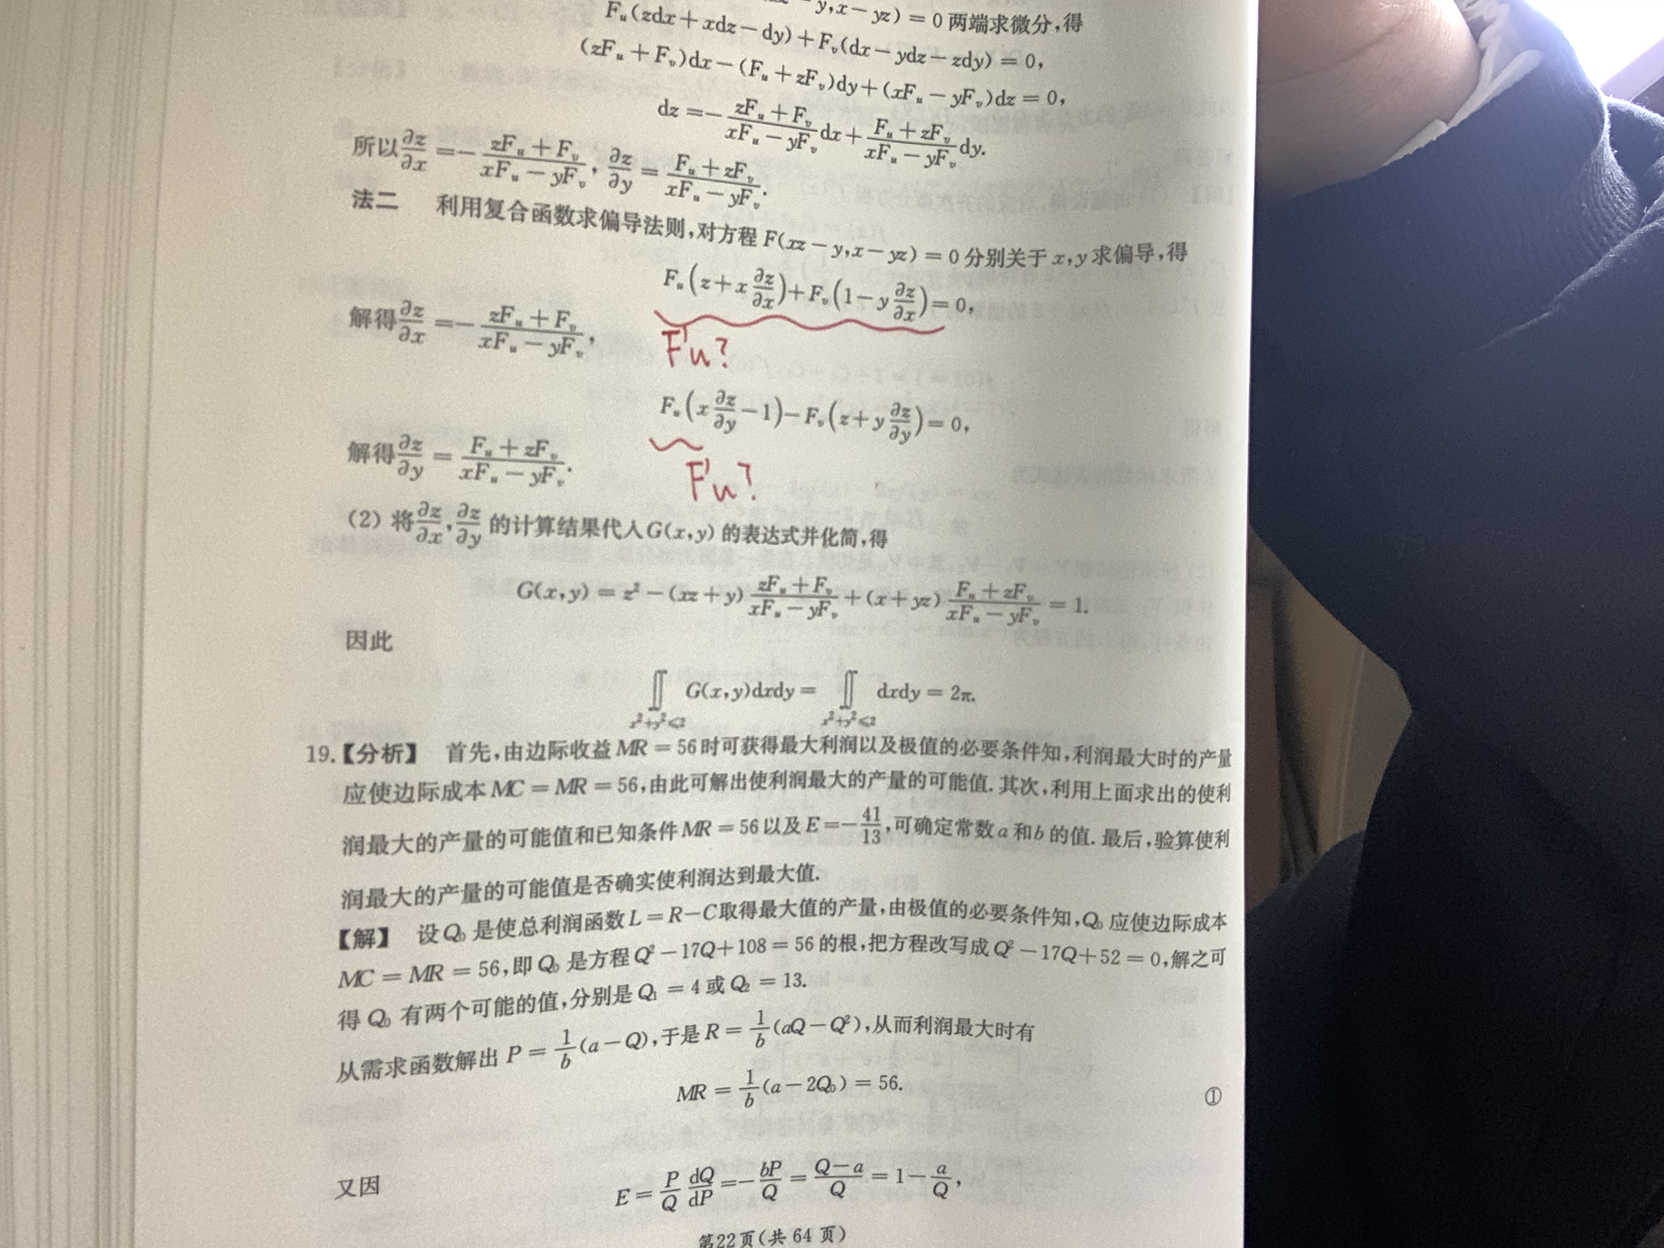 y,x－yz)＝0两端求微分,得
Fᵤ(zdx＋xdz－dy)＋Fᵥ(dx－ydz－zdy)＝0,
(zFᵤ＋Fᵥ)dx－(Fᵤ＋zFᵥ)dy＋(xFᵤ－yFᵥ)dz＝0,
dz＝－(zFᵤ＋Fᵥ)/(xFᵤ－yFᵥ)dx＋(Fᵤ＋zFᵥ)/(xFᵤ－yFᵥ)dy.
所以∂z/∂x＝－(zFᵤ＋Fᵥ)/(xFᵤ－yFᵥ),∂z/∂y＝(Fᵤ＋zFᵥ)/(xFᵤ－yFᵥ).
法二 利用复合函数求偏导法则,对方程F(xz－y,x－yz)＝0分别关于x,y求偏导,得
Fᵤ(z＋x∂z/∂x)＋Fᵥ(1－y∂z/∂x)＝0,
F'u?
解得∂z/∂x＝－(zFᵤ＋Fᵥ)/(xFᵤ－yFᵥ),
Fᵤ(x∂z/∂y－1)－Fᵥ(z＋y∂z/∂y)＝0,
F'u?
解得∂z/∂y＝(Fᵤ＋zFᵥ)/(xFᵤ－yFᵥ).
(2)将∂z/∂x,∂z/∂y的计算结果代入G(x,y)的表达式并化简,得
G(x,y)＝z²－(xz＋y)(zFᵤ＋Fᵥ)/(xFᵤ－yFᵥ)＋(x＋yz)(Fᵤ＋zFᵥ)/(xFᵤ－yFᵥ)＝1.
因此
∬G(x,y)dxdy＝∬dxdy＝2π.
x²+y²≤2 x²+y²≤2
19.【分析】 首先,由边际收益MR＝56时可获得最大利润以及极值的必要条件知,利润最大时的产量
应使边际成本MC＝MR＝56,由此可解出使利润最大的产量的可能值.其次,利用上面求出的使利
润最大的产量的可能值和已知条件MR＝56以及E＝－41/13,可确定常数a和b的值.最后,验算使利
润最大的产量的可能值是否确实使利润达到最大值.
【解】 设Q₀是使总利润函数L＝R－C取得最大值的产量,由极值的必要条件知,Q₀应使边际成本
MC＝MR＝56,即Q₀是方程Q²－17Q＋108＝56的根,把方程改写成Q²－17Q＋52＝0,解之可
得Q₀有两个可能的值,分别是Q₁＝4或Q₂＝13.
从需求函数解出P＝1/b(a－Q),于是R＝1/b(aQ－Q²),从而利润最大时有
MR＝1/b(a－2Q₀)＝56. ①
又因 E＝P/Q dQ/dP＝－bP/Q＝(Q－a)/Q＝1－a/Q,
第22页(共 64 页)